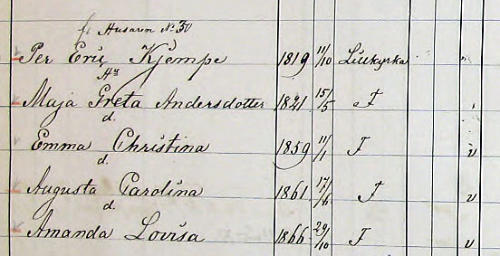 f. Husaren No 30
Per Eric Kjempe 1819 11/10 Liukyrka "
Hu
Maja Greta Andersdotter 1821 15/5 F
d.
Emma Christina 1859 11/1 F v
d.
Augusta Carolina 1861 17/6 F v
d.
Amanda Lovisa 1866 29/10 F v